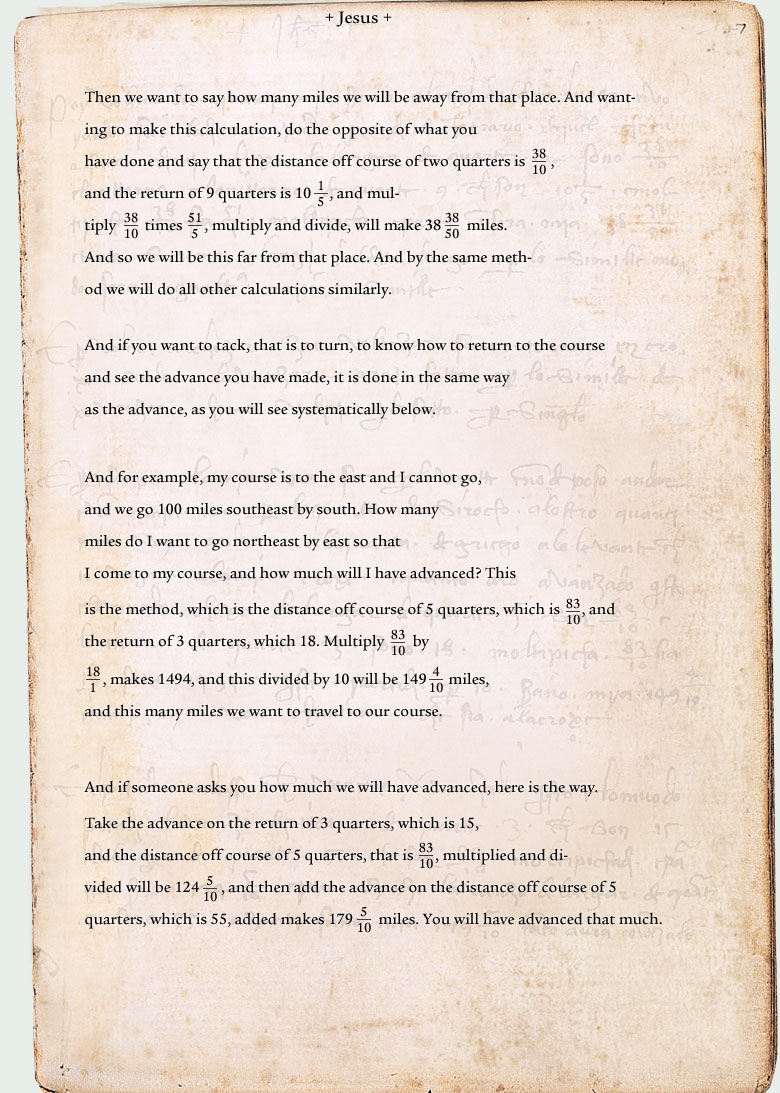 + Jesus +
7
Then we want to say how many miles we will be away from that place. And want-
ing to make this calculation, do the opposite of what you
have done and say that the distance off course of two quarters is 38/10,
and the return of 9 quarters is 10 1/5, and mul-
tiply 38/10 times 51/5, multiply and divide, will make 38 38/50 miles.
And so we will be this far from that place. And by the same meth-
od we will do all other calculations similarly.
And if you want to tack, that is to turn, to know how to return to the course
and see the advance you have made, it is done in the same way
as the advance, as you will see systematically below.
And for example, my course is to the east and I cannot go,
and we go 100 miles southeast by south. How many
miles do I want to go northeast by east so that
I come to my course, and how much will I have advanced? This
is the method, which is the distance off course of 5 quarters, which is 83/10, and
the return of 3 quarters, which 18. Multiply 83/10 by
18/1, makes 1494, and this divided by 10 will be 149 4/10 miles,
and this many miles we want to travel to our course.
And if someone asks you how much we will have advanced, here is the way.
Take the advance on the return of 3 quarters, which is 15,
and the distance off course of 5 quarters, that is 83/10, multiplied and di-
vided will be 124 5/10, and then add the advance on the distance off course of 5
quarters, which is 55, added makes 179 5/10 miles. You will have advanced that much.